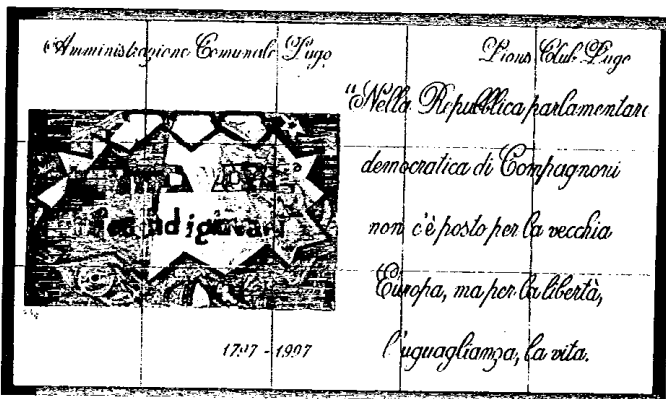 Amministrazione Comunale Lugo
Lions Club Lugo
"Nella Repubblica parlamentare
democratica di Compagnoni
non c'è posto per la vecchia
Europa, ma per la libertà,
l'uguaglianza, la vita.
1797 - 1997